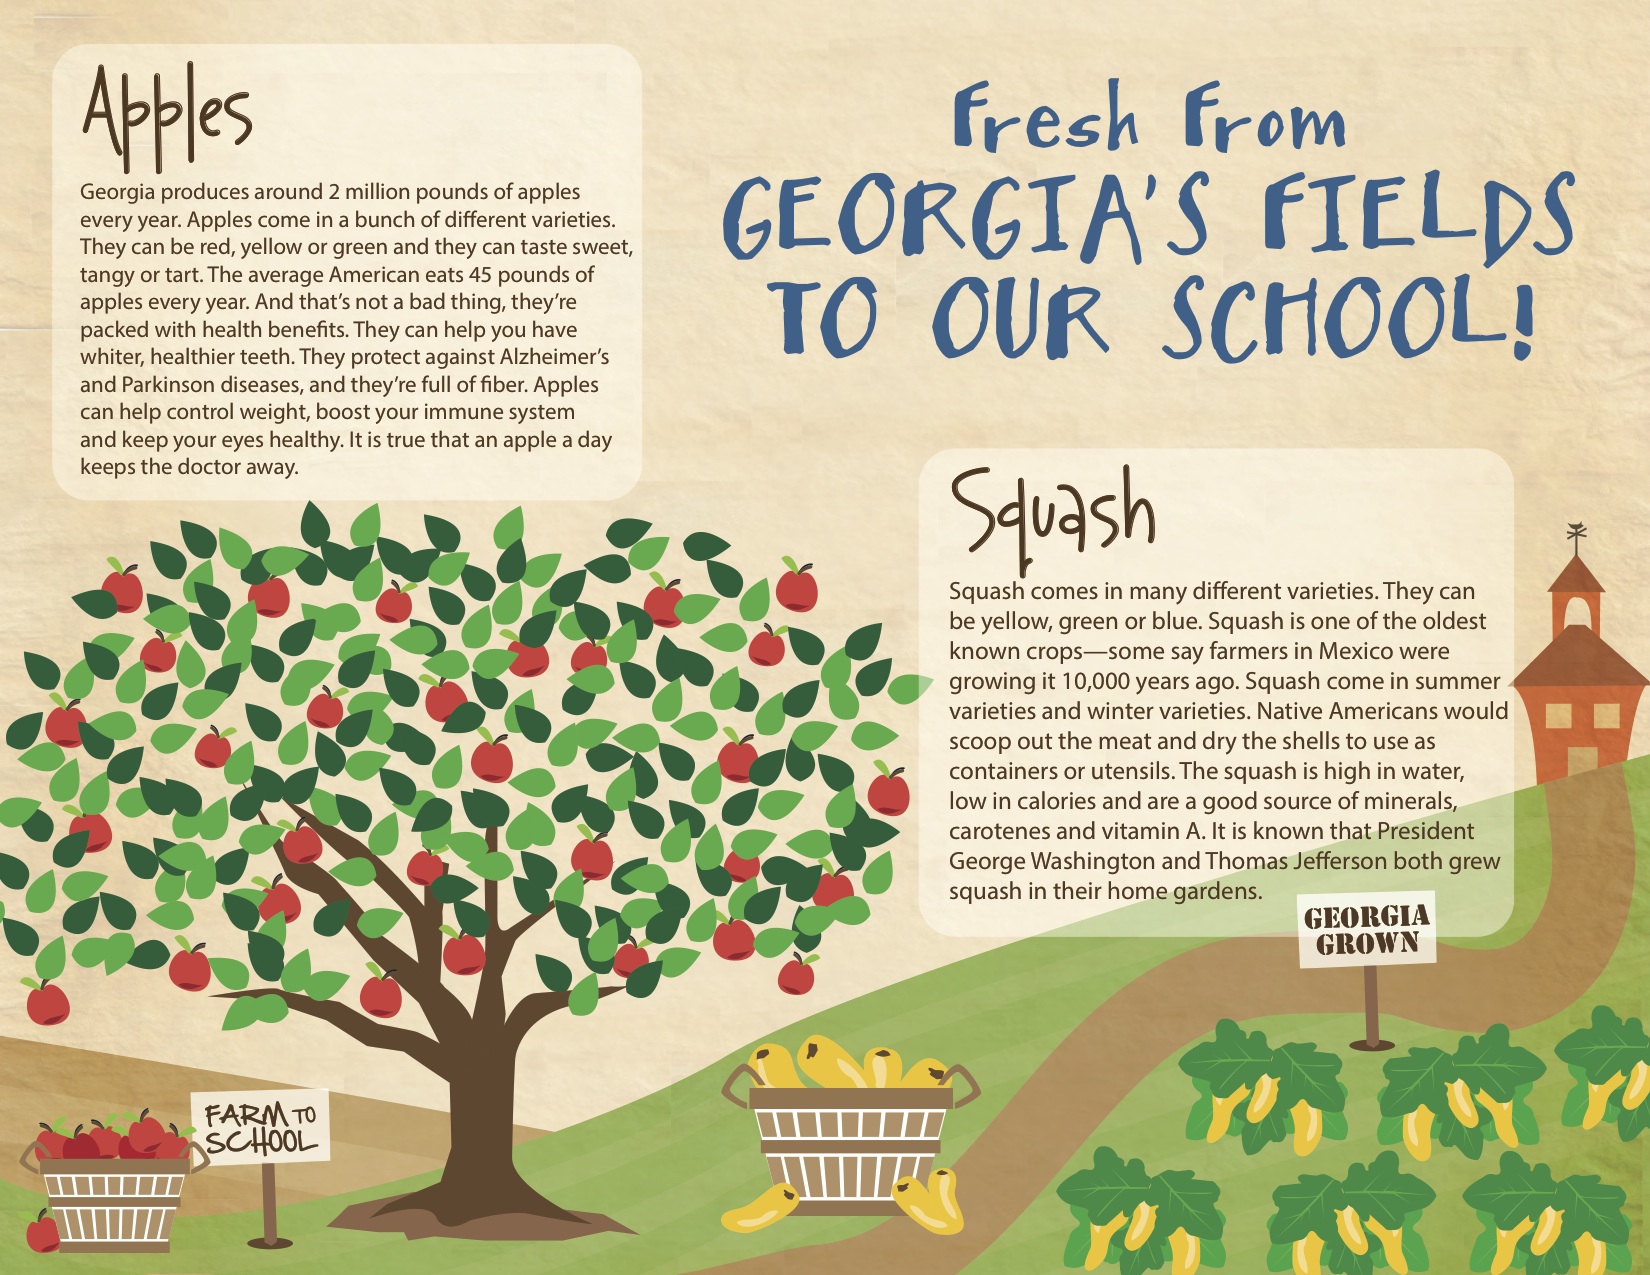 Apples
Georgia produces around 2 million pounds of apples
every year. Apples come in a bunch of different varieties.
They can be red, yellow or green and they can taste sweet,
tangy or tart. The average American eats 45 pounds of
apples every year. And that's not a bad thing, they're
packed with health benefits. They can help you have
whiter, healthier teeth. They protect against Alzheimer's
and Parkinson diseases, and they're full of fiber. Apples
can help control weight, boost your immune system
and keep your eyes healthy. It is true that an apple a day
keeps the doctor away.
Fresh From
GEORGIA'S FIELDS
TO OUR SCHOOL!
Squash
Squash comes in many different varieties. They can
be yellow, green or blue. Squash is one of the oldest
known crops—some say farmers in Mexico were
growing it 10,000 years ago. Squash come in summer
varieties and winter varieties. Native Americans would
scoop out the meat and dry the shells to use as
containers or utensils. The squash is high in water,
low in calories and are a good source of minerals,
carotenes and vitamin A. It is known that President
George Washington and Thomas Jefferson both grew
squash in their home gardens.
GEORGIA
GROWN
FARM TO
SCHOOL